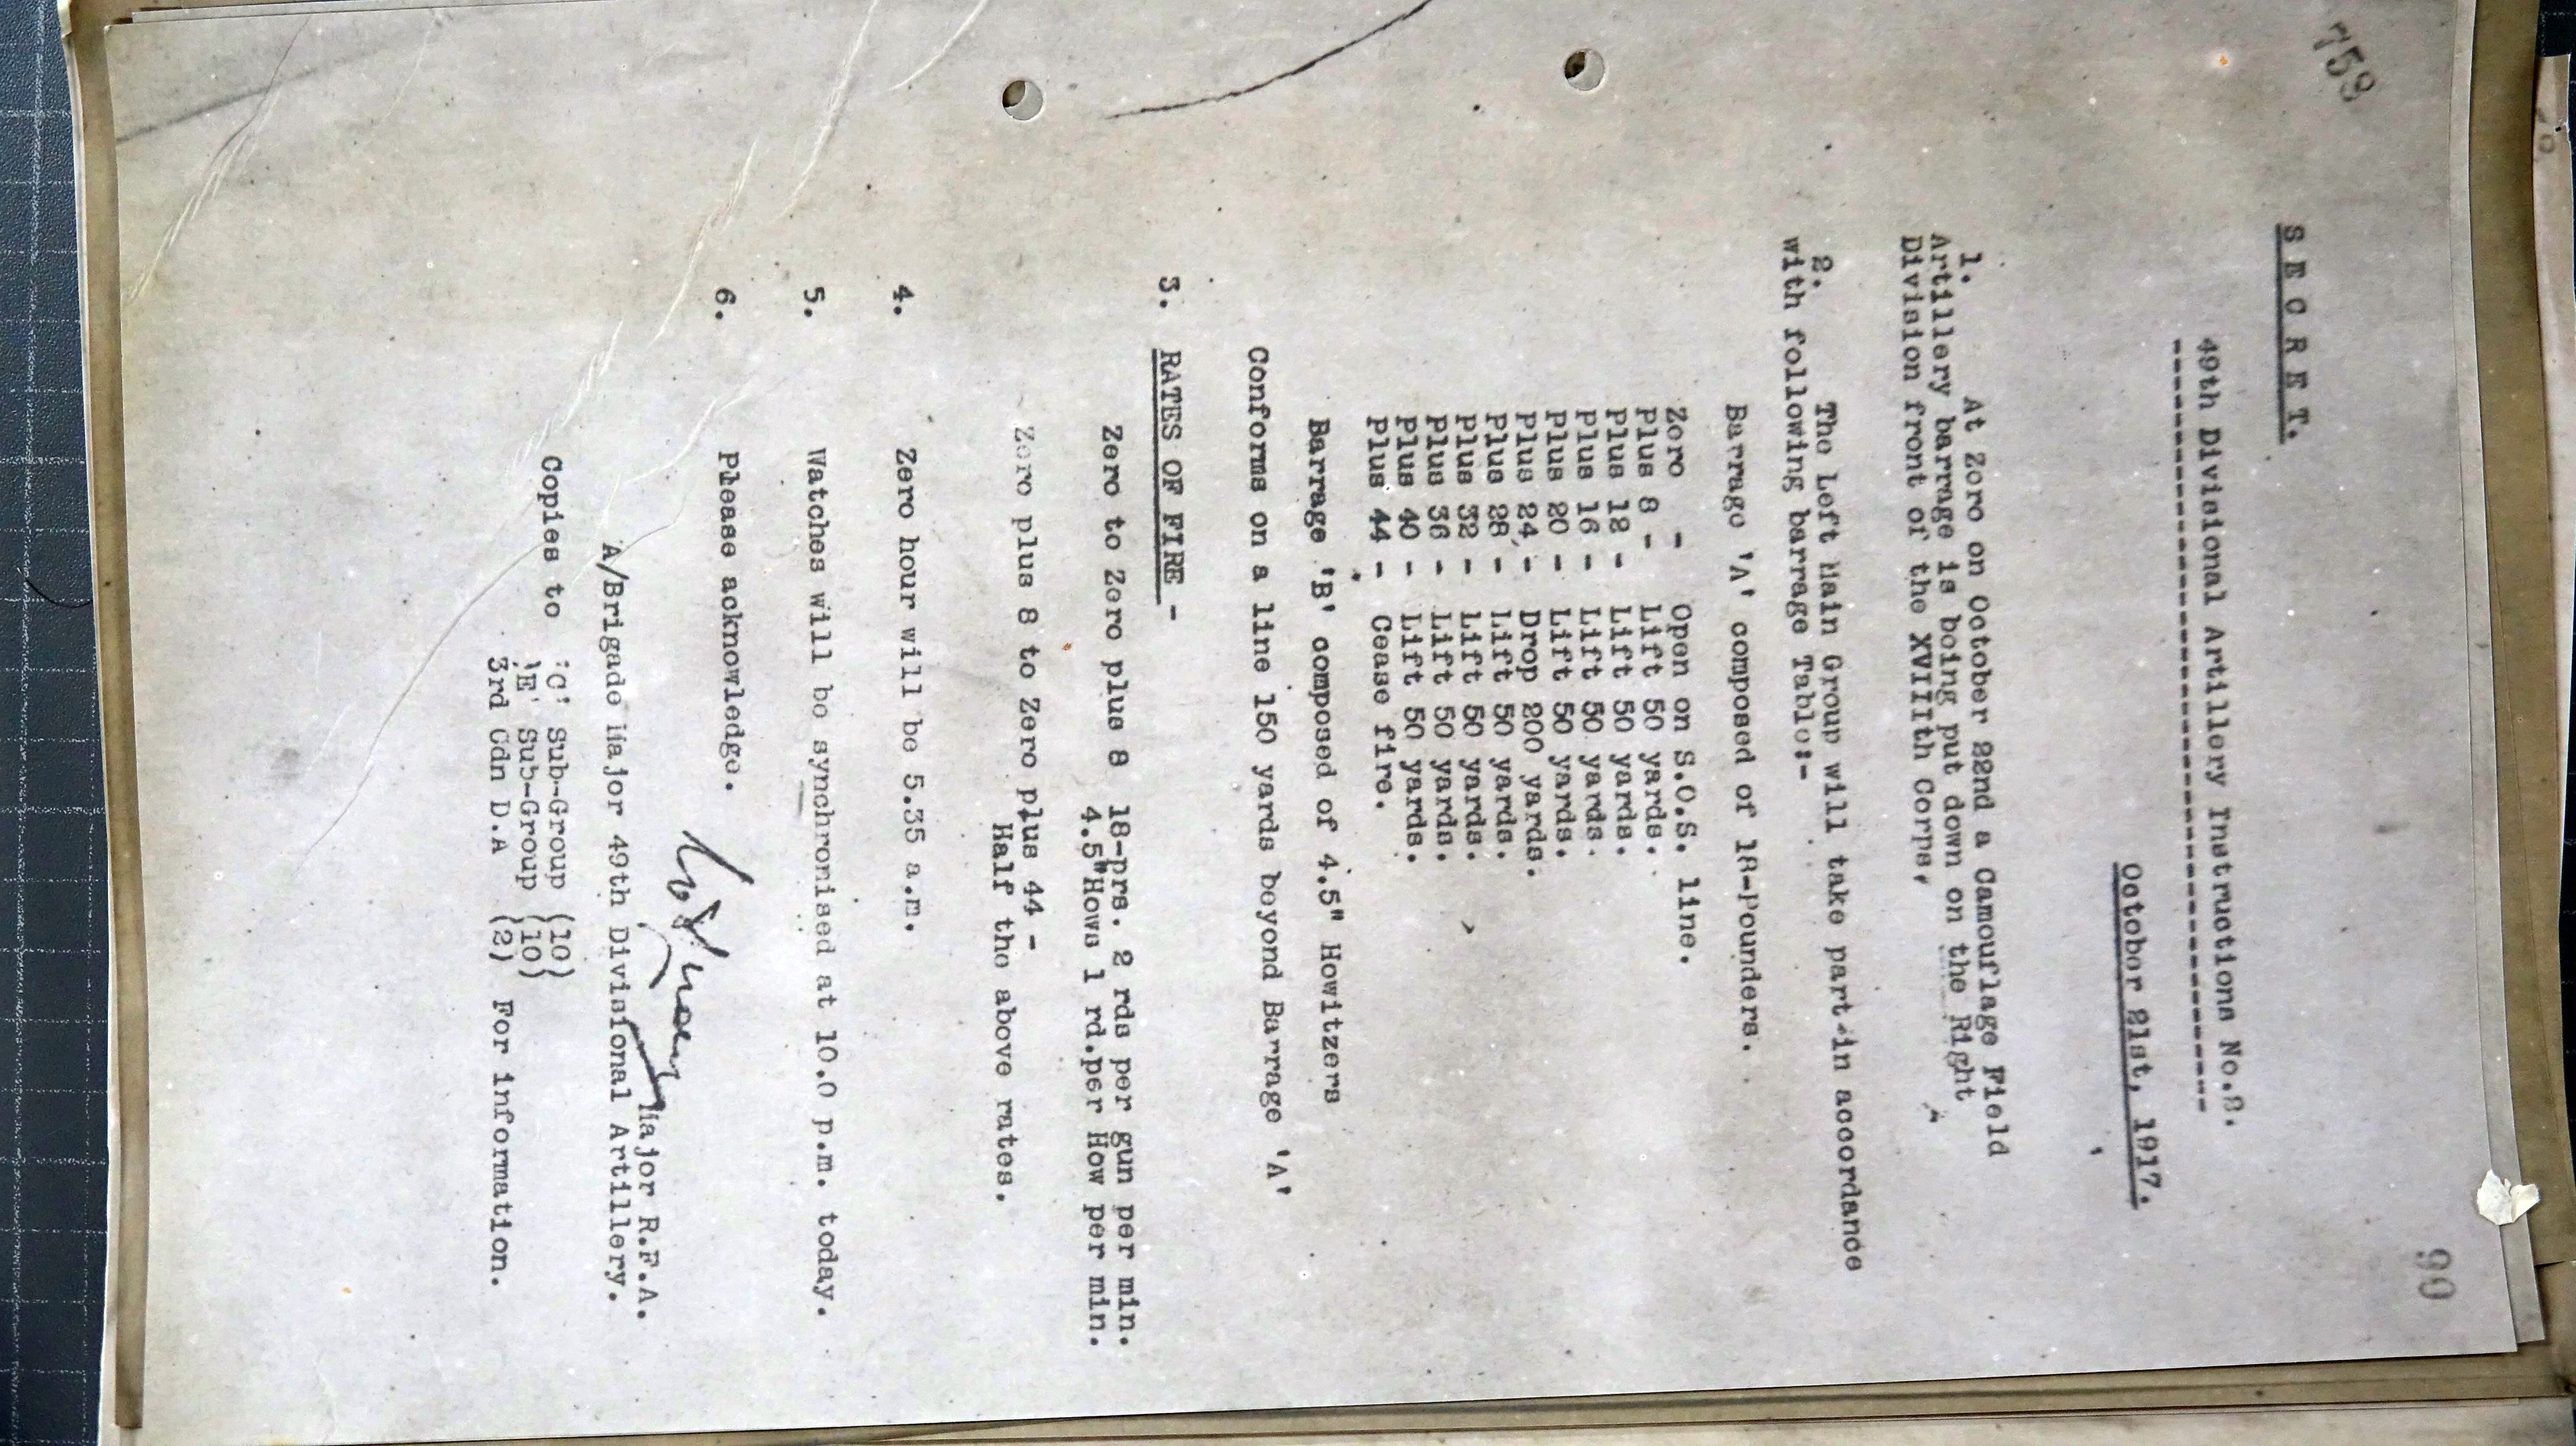 759
90
S E C R E T.
49th Divisional Artillery Instructions No.2.
----------------------------------------
October 21st, 1917.
1. At Zero on October 22nd a Camouflage Field
Artillery barrage is being put down on the Right
Division front of the XVIIIth Corps.
2. The Left Main Group will take part in accordance
with following barrage Table:-
Barrage 'A' composed of 18-Pounders.
Zero - Open on S.O.S. line.
Plus 8 - Lift 50 yards.
Plus 12 - Lift 50 yards.
Plus 16 - Lift 50 yards.
Plus 20 - Lift 50 yards.
Plus 24 - Drop 200 yards.
Plus 28 - Lift 50 yards.
Plus 32 - Lift 50 yards.
Plus 36 - Lift 50 yards.
Plus 40 - Lift 50 yards.
Plus 44 - Cease fire.
Barrage 'B' composed of 4.5" Howitzers
Conforms on a line 150 yards beyond Barrage 'A'
3. RATES OF FIRE -
Zero to Zero plus 8 18-prs. 2 rds per gun per min.
4.5"Hows 1 rd.per How per min.
Zero plus 8 to Zero plus 44 -
Half the above rates.
4. Zero hour will be 5.35 a.m.
5. Watches will be synchronised at 10.0 p.m. today.
6. Please acknowledge.
Major R.F.A.
A/Brigade Major 49th Divisional Artillery.
Copies to 'C' Sub-Group (10)
'E' Sub-Group (10)
3rd Cdn D.A (2) For information.